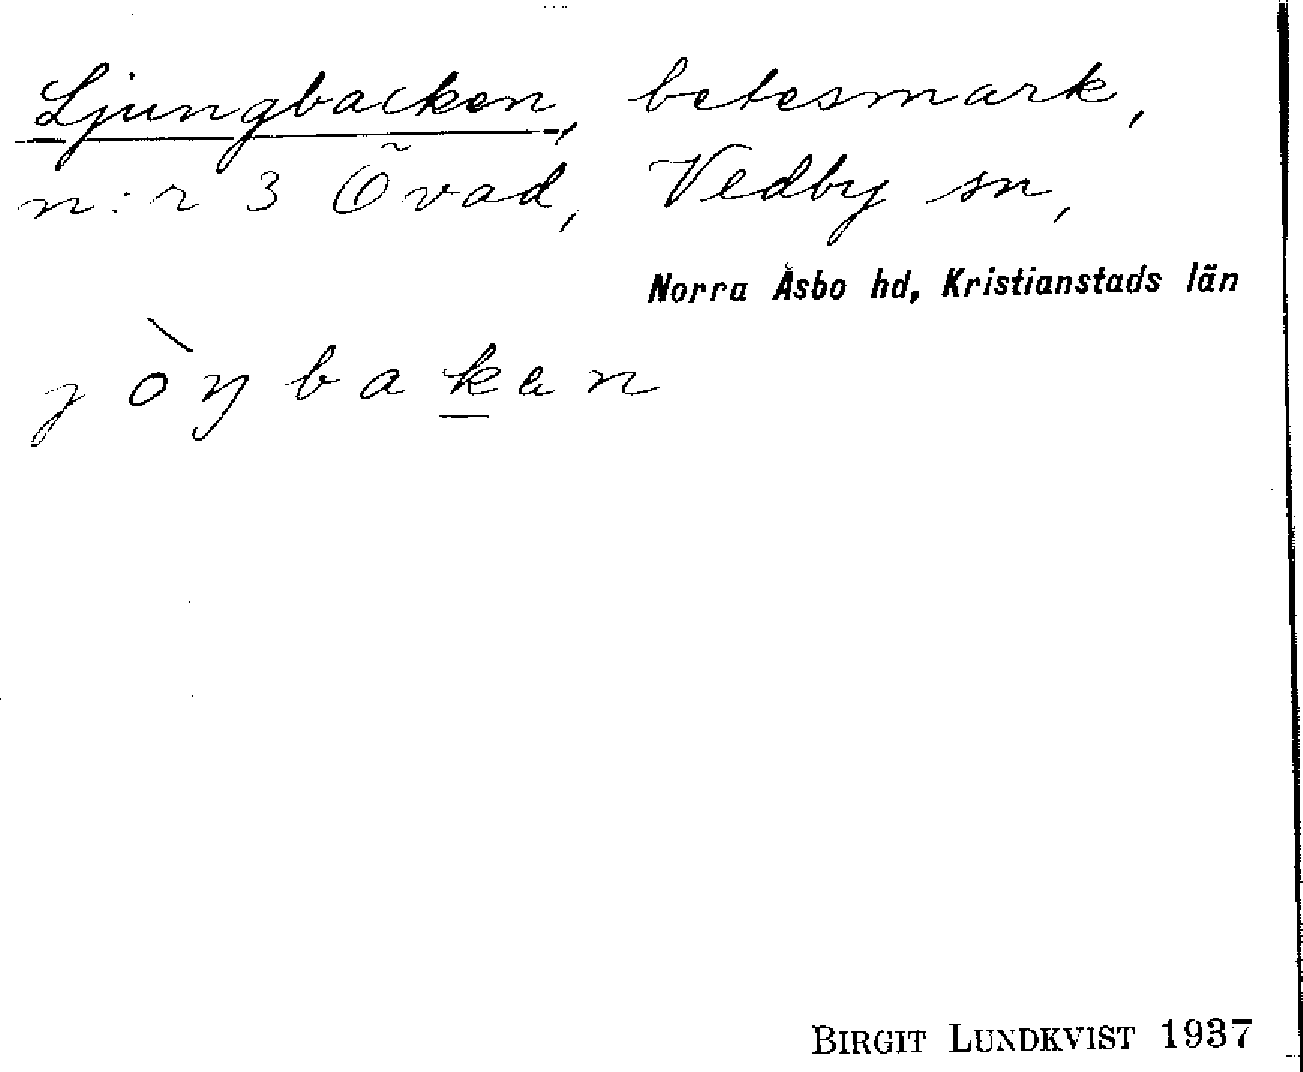 Ljungbacken, betesmark,
n:r 3 Õvad, Vedby sn,
Norra Åsbo hd, Kristianstads län
jòŋbakan
BIRGIT LUNDKVIST 1937